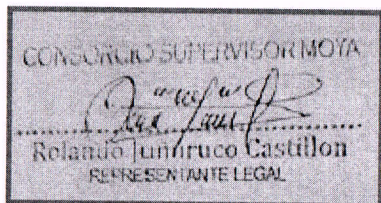 CONSORCIO SUPERVISOR MOYA
Rolando Castillon
REPRESENTANTE LEGAL